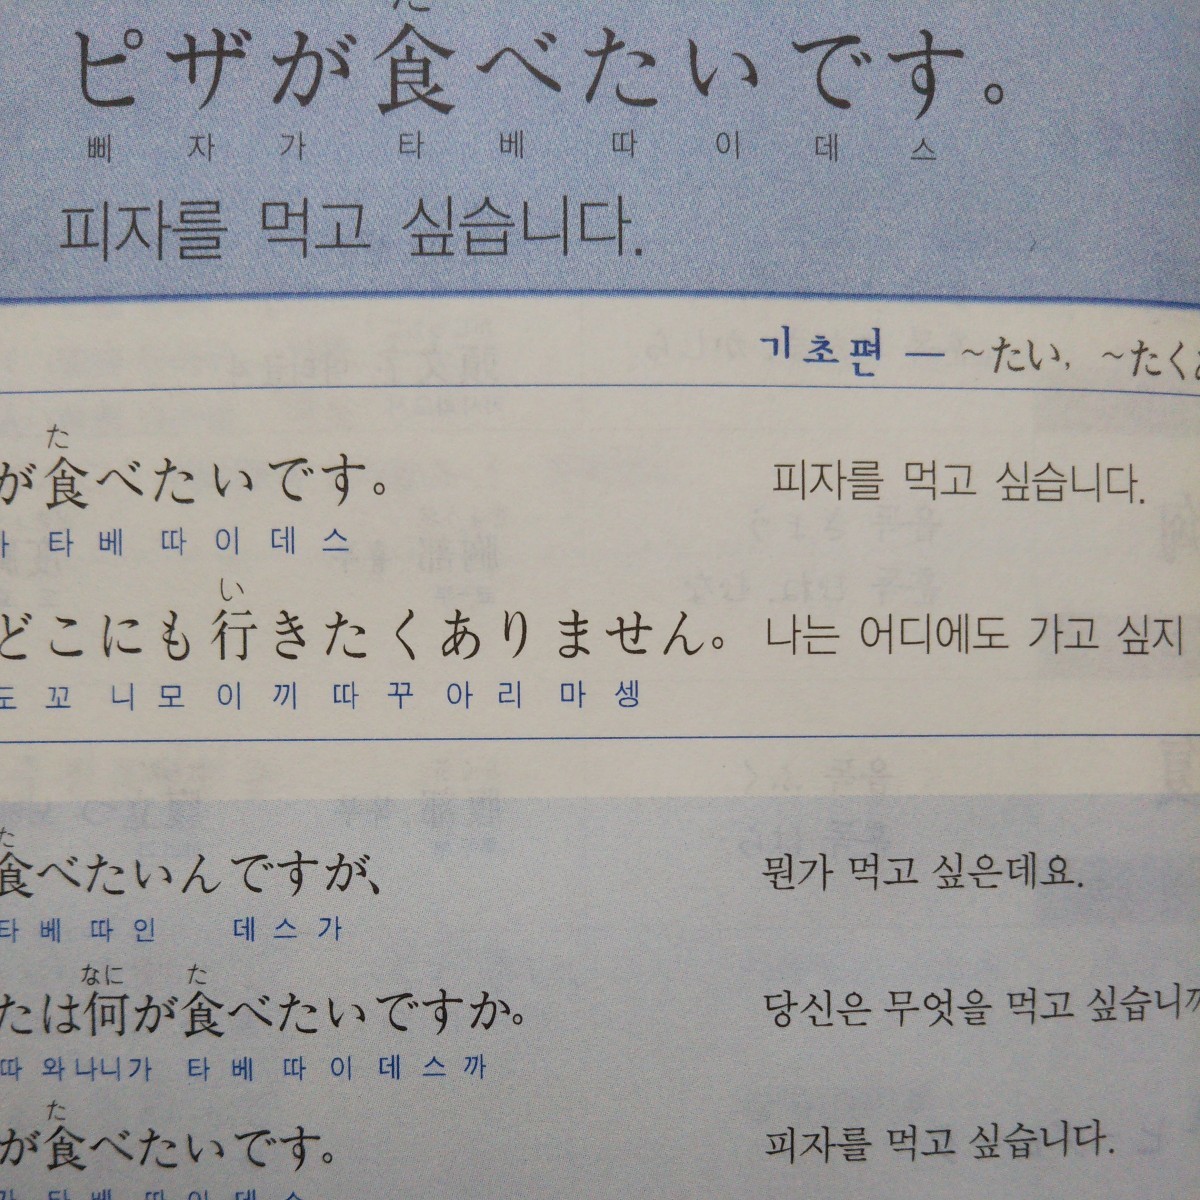 た
ピザが食べたいです。
삐 자 가 타 베 따 이 데 스
피자를 먹고 싶습니다.
기초편 — ~たい, ~たく
た
が食べたいです。 피자를 먹고 싶습니다.
타 베 따 이 데 스
い
どこにも行きたくありません。 나는 어디에도 가고 싶지
도 꼬 니 모 이 끼 따 꾸 아 리 마 셍
た
食べたいんですが、 뭔가 먹고 싶은데요.
타 베 따 인 데 스 가
なに た
たは何が食べたいですか。 당신은 무엇을 먹고 싶습니까
따 와 나니가 타 베 따 이 데 스 까
た
が食べたいです。 피자를 먹고 싶습니다.
가 타 베 따 이 데 스